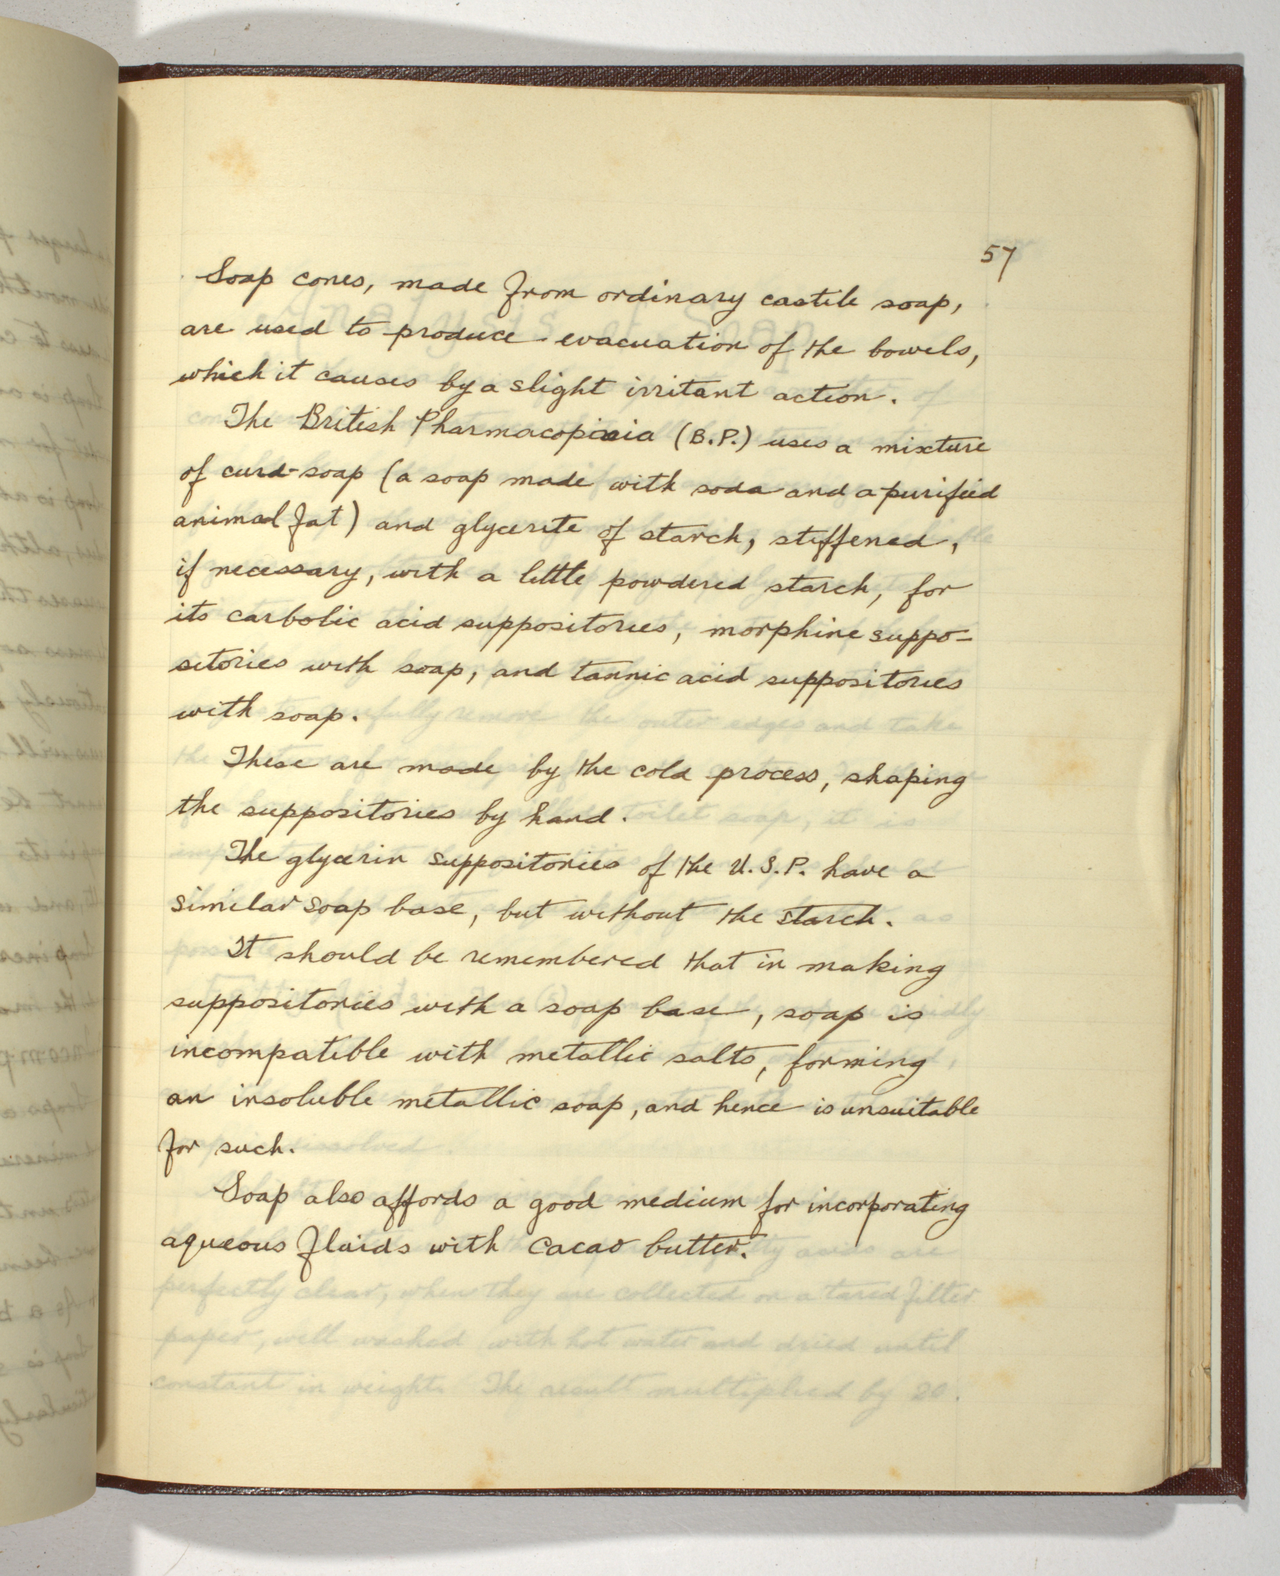 57
Soap cones, made from ordinary castile soap,
are used to produce evacuation of the bowels,
which it causes by a slight irritant action.
The British Pharmacopœia (B.P.) uses a mixture
of curd-soap (a soap made with soda and a purified
animal fat) and glycerite of starch, stiffened,
if necessary, with a little powdered starch, for
its carbolic acid suppositories, morphine suppo-
sitories with soap, and tannic acid suppositories
with soap.
These are made by the cold process, shaping
the suppositories by hand.
The glycerin suppositories of the U.S.P. have a
similar soap base, but without the starch.
It should be remembered that in making
suppositories with a soap base, soap is
incompatible with metallic salts, forming
an insoluble metallic soap, and hence is unsuitable
for such.
Soap also affords a good medium for incorporating
aqueous fluids with cacao butter.
perfectly clear, when they are collected on a tared filter
paper, well washed with hot water and dried until
constant in weight. The result multiplied by 20.